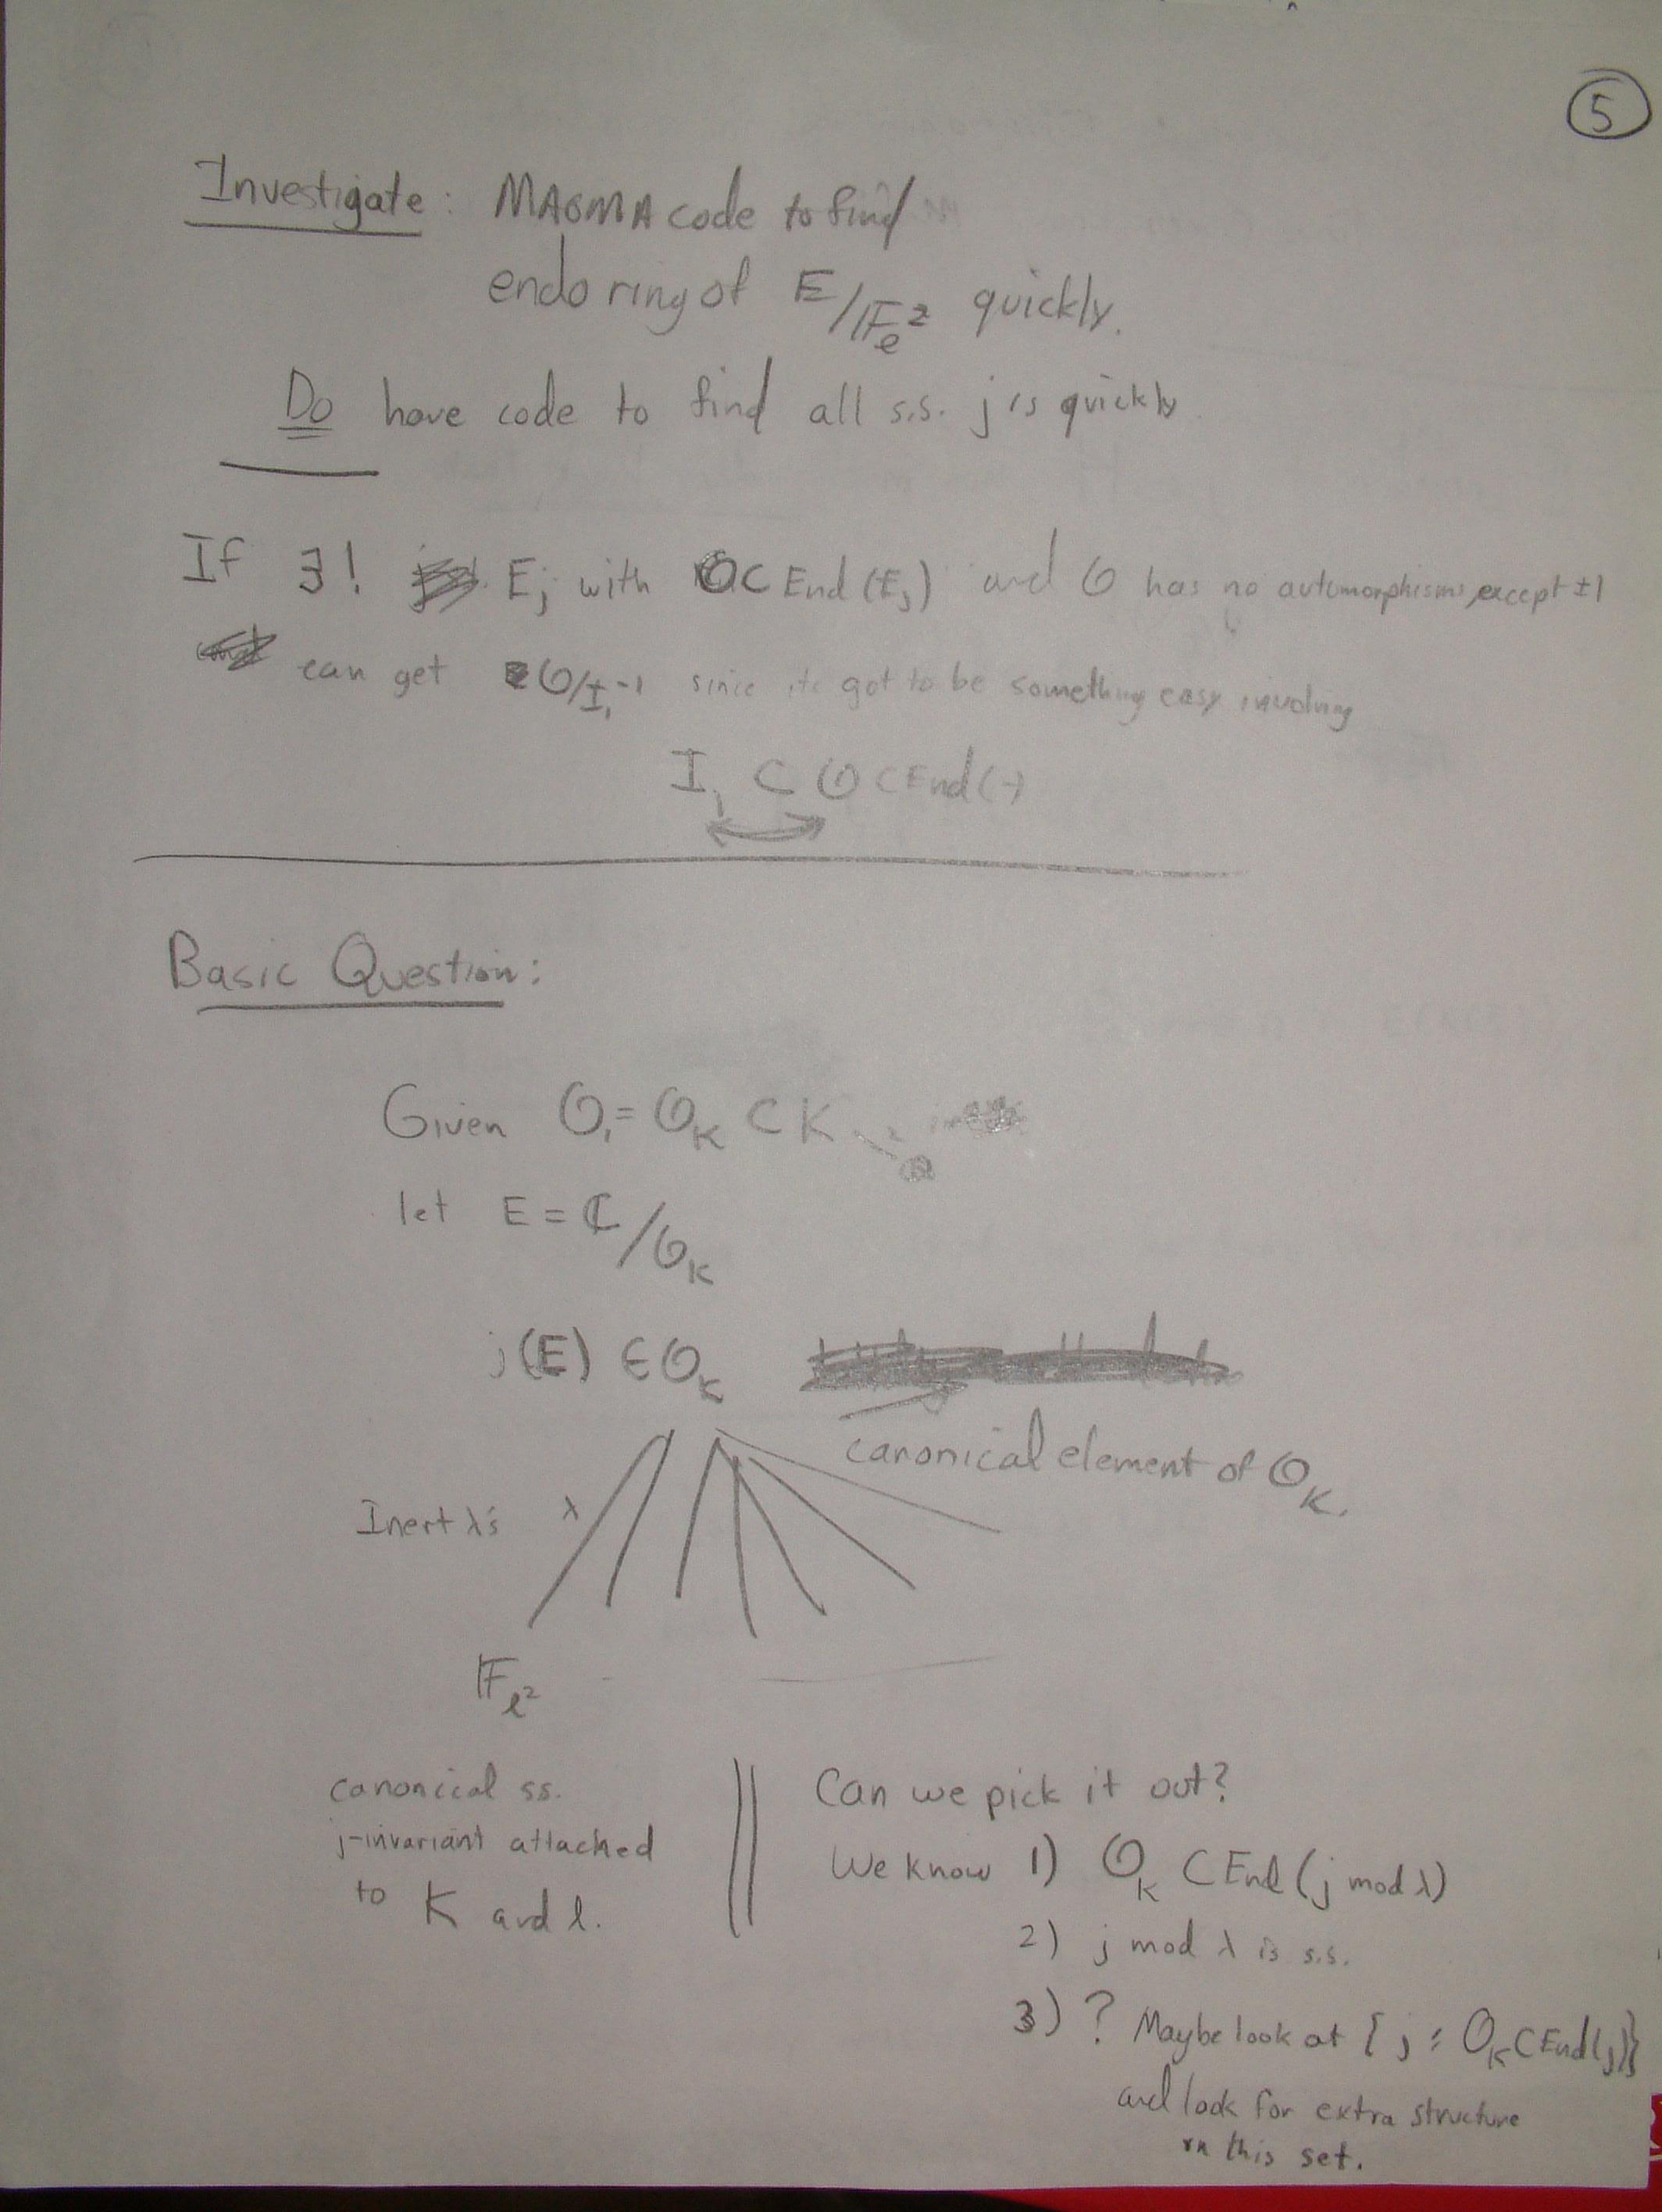 5
Investigate: MAGMA code to find
endo ring of E/𝔽_ℓ² quickly.
Do have code to find all s.s. j's quickly.
If ∃! E_j with O ⊂ End(E_j) and O has no automorphisms, except ±1
can get O/I,-1 since its got to be something easy involving
I, ⊂ O ⊂ End(-)
Basic Question:
Given O, = O_K ⊂ K
let E = ℂ/O_K
j(E) ∈ O_K
canonical element of O_K.
Inert λ's λ
𝔽_ℓ²
canonical ss.
j-invariant attached
to K and ℓ.
Can we pick it out?
We know 1) O_K ⊂ End(j mod λ)
2) j mod λ is s.s.
3) ? Maybe look at { j : O_K ⊂ End(j)}
and look for extra structure
on this set.